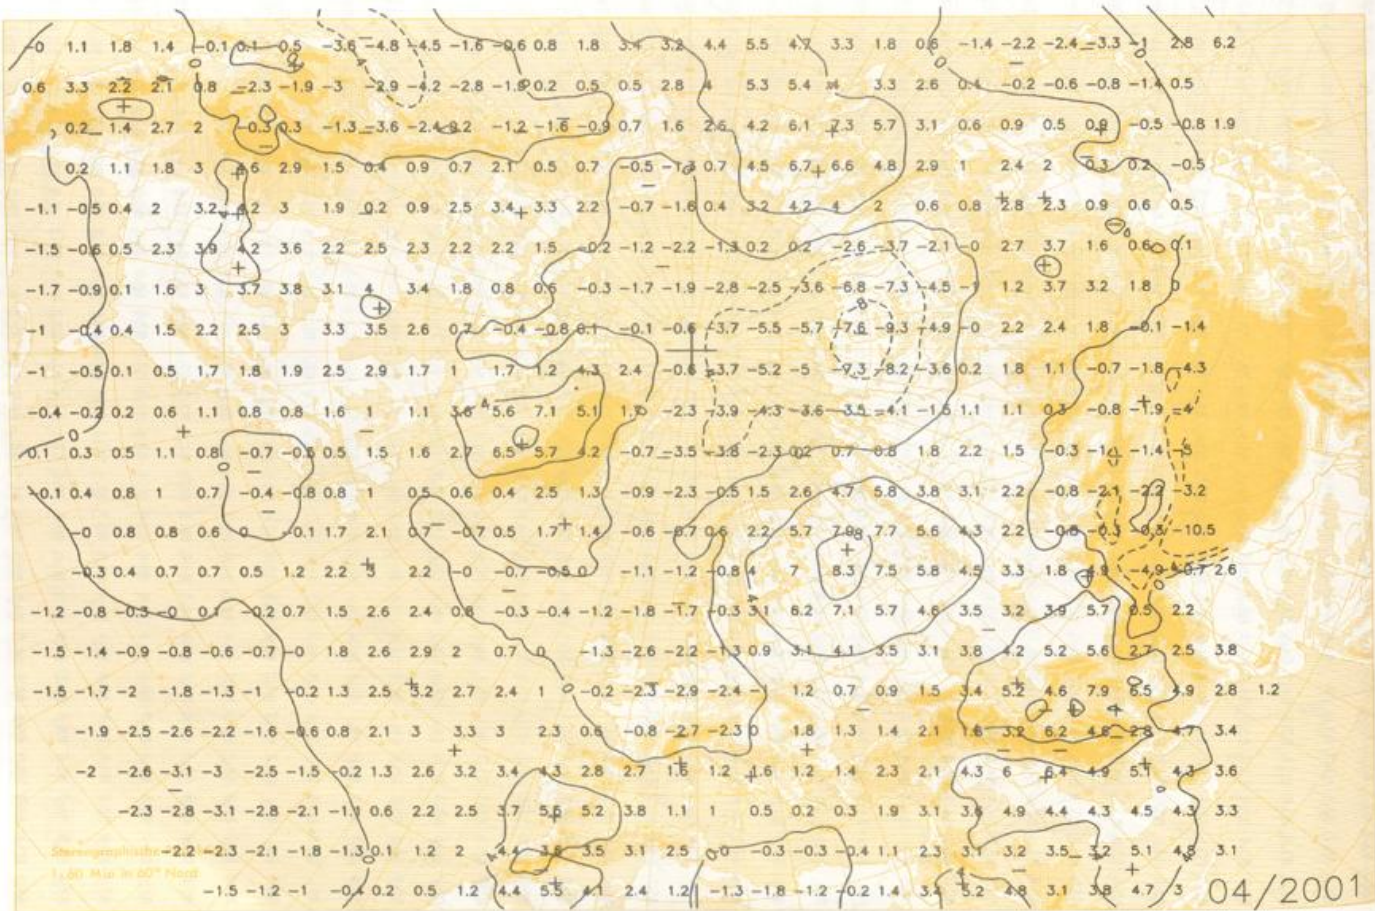 -0 1.1 1.8 1.4 -0.1 0.1 0.5 -3.6 -4.8 -4.5 -1.6 -0.6 0.8 1.8 3.4 3.2 4.4 5.5 4.7 3.3 1.8 0.6 -1.4 -2.2 -2.4 -3.3 -1 2.8 6.2
0.6 3.3 2.2 2.1 0.8 -2.3 -1.9 -3 -2.9 -4.2 -2.8 -1.9 0.2 0.5 0.5 2.8 4 5.3 5.4 4 3.3 2.6 0.4 -0.2 -0.6 -0.8 -1.4 0.5
0.2 1.4 2.7 2 -0.3 0.3 -1.3 -3.6 -2.4 -1.2 -1.6 -0.9 0.7 1.6 2.6 4.2 6.1 7.3 5.7 3.1 0.6 0.9 0.5 0.9 -0.5 -0.8 1.9
0.2 1.1 1.8 3 4.6 2.9 1.5 0.4 0.9 0.7 2.1 0.5 0.7 -0.5 -1.3 0.7 4.5 6.7 6.6 4.8 2.9 1 2.4 2 0.3 0.2 -0.5
-1.1 -0.5 0.4 2 3.2 4.2 3 1.9 0.2 0.9 2.5 3.4 3.3 2.2 -0.7 -1.6 0.4 3.2 4.2 4 2 0.6 0.8 2.8 2.3 0.9 0.6 0.5
-1.5 -0.6 0.5 2.3 3.9 4.2 3.6 2.2 2.5 2.3 2.2 2.2 1.5 -0.2 -1.2 -2.2 -1.3 0.2 0.2 -2.6 -3.7 -2.1 -0 2.7 3.7 1.6 0.6 0.1
-1.7 -0.9 0.1 1.6 3 3.7 3.8 3.1 4 3.4 1.8 0.8 0.6 -0.3 -1.7 -1.9 -2.8 -2.5 -3.6 -6.8 -7.3 -4.5 -1 1.2 3.7 3.2 1.8 0
-1 -0.4 0.4 1.5 2.2 2.5 3 3.3 3.5 2.6 0.7 -0.4 -0.8 0.1 -0.1 -0.6 -3.7 -5.5 -5.7 -7.6 -9.3 -4.9 -0 2.2 2.4 1.8 -0.1 -1.4
-1 -0.5 0.1 0.5 1.7 1.8 1.9 2.5 2.9 1.7 1 1.7 1.2 4.3 2.4 -0.6 -3.7 -5.2 -5 -7.3 -8.2 -3.6 0.2 1.8 1.1 -0.7 -1.8 -4.3
-0.4 -0.2 0.2 0.6 1.1 0.8 0.8 1.6 1 1.1 3.8 5.6 7.1 5.1 -2.3 -3.9 -4.3 -3.6 -3.5 -4.1 -1.5 1.1 1.1 0.3 -0.8 -1.9 -4
0.1 0.3 0.5 1.1 0.8 -0.7 0.5 1.5 1.6 2.7 6.5 5.7 4.2 -0.7 -3.5 -3.8 -2.3 0.2 0.7 0.8 1.8 2.2 1.5 -0.3 -1 -1.4 -5
-0.1 0.4 0.8 1 0.7 -0.4 -0.8 0.8 1 0.5 0.6 0.4 2.5 1.3 -0.9 -2.3 -0.5 1.5 2.6 4.7 5.8 3.8 3.1 2.2 -0.8 -2.1 -2.2 -3.2
-0 0.8 0.8 0.6 0 -0.1 1.7 2.1 0.7 -0.7 0.5 1.7 1.4 -0.6 -0.7 0.6 2.2 5.7 7.9 7.7 5.6 4.3 2.2 -0.8 -0.3 -0.3 -10.5
-0.3 0.4 0.7 0.7 0.5 1.2 2.2 3 2.2 -0 -0.7 -0.5 0 -1.1 -1.2 -0.8 4 7 8.3 7.5 5.8 4.5 3.3 1.8 4.9 -4.9 -0.7 2.6
-1.2 -0.8 -0.3 -0 0.1 -0.2 0.7 1.5 2.6 2.4 0.8 -0.3 -0.4 -1.2 -1.8 -1.7 -0.3 3.1 6.2 7.1 5.7 4.6 3.5 3.2 3.9 5.7 0.5 2.2
-1.5 -1.4 -0.9 -0.8 -0.6 -0.7 -0 1.8 2.6 2.9 2 0.7 0 -1.3 -2.6 -2.2 -1.3 0.9 3.1 4.1 3.5 3.1 3.8 4.2 5.2 5.6 2.7 2.5 3.8
-1.5 -1.7 -2 -1.8 -1.3 -1 -0.2 1.3 2.5 3.2 2.7 2.4 1 -0.2 -2.3 -2.9 -2.4 -1 1.2 0.7 0.9 1.5 3.4 5.2 4.6 7.9 6.5 4.9 2.8 1.2
-1.9 -2.5 -2.6 -2.2 -1.6 -0.6 0.8 2.1 3 3.3 3 2.3 0.6 -0.8 -2.7 -2.3 0 1.8 1.3 1.4 2.1 1.6 3.2 6.2 4.6 2.8 4.7 3.4
-2 -2.6 -3.1 -3 -2.5 -1.5 -0.2 1.3 2.6 3.2 3.4 4.3 2.8 2.7 1.6 1.2 1.6 1.2 1.4 2.3 2.1 4.3 6 6.4 4.9 5.1 4.3 3.6
-2.3 -2.8 -3.1 -2.8 -2.1 -1.1 0.6 2.2 2.5 3.7 5.6 5.2 3.8 1.1 1 0.5 0.2 0.3 1.9 3.1 3.6 4.9 4.4 4.3 4.5 4.3 3.3
Stereographische
1:60 Mio in 60° Nord
-2.2 -2.3 -2.1 -1.8 -1.3 0.1 1.2 2 4.4 3.8 3.5 3.1 2.5 0.0 -0.3 -0.3 -0.4 1.1 2.3 3.1 3.2 3.5 3.2 5.1 4.8 3.1
-1.5 -1.2 -1 -0.4 0.2 0.5 1.2 4.4 5.5 4.1 2.4 1.2 -1.3 -1.8 -1.2 -0.2 1.4 3.4 5.2 4.8 3.1 3.8 4.7 3
04/2001